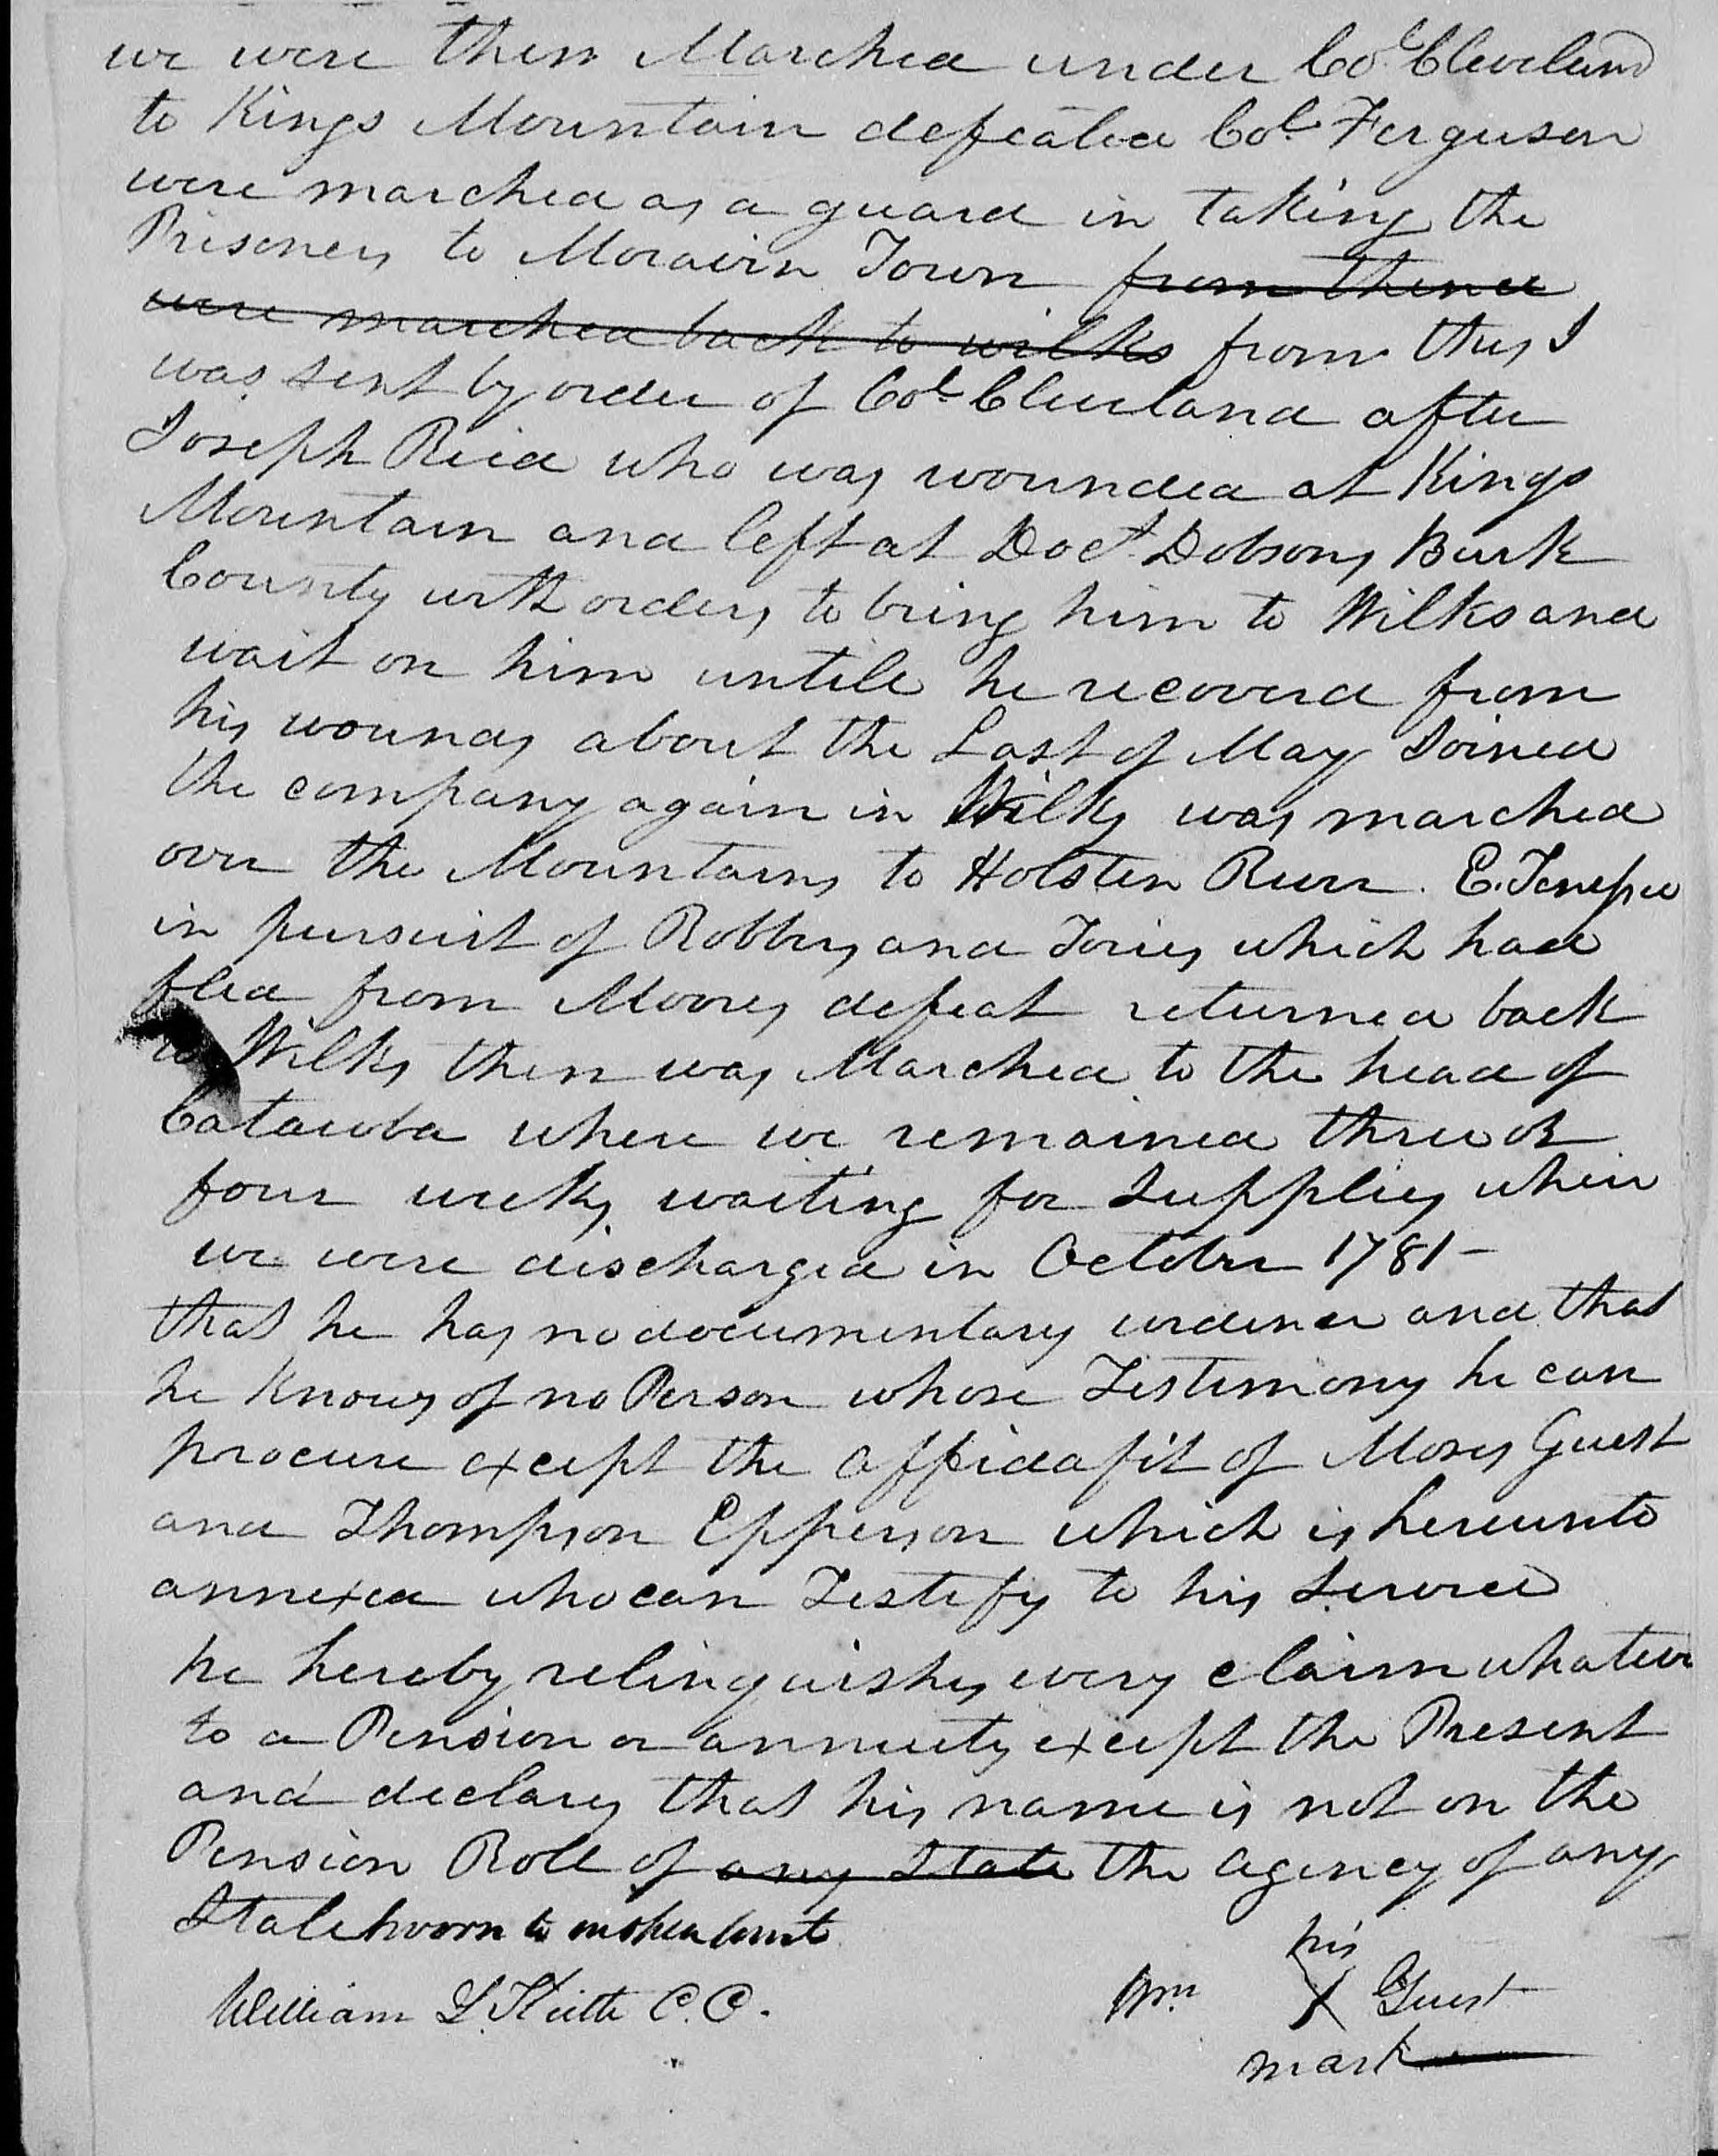 we were then Marched under Col Cleveland
to Kings Mountain defeated Col Ferguson
were marched as a guard in taking the
Prisoners to Moravin Town from thence
were marched back to wilks from this I
was sent by order of Col Cleveland after
Joseph Reid who was wounded at Kings
Mountain and left at Doct Dobsons Burk
County with orders to bring him to Wilks and
wait on him untile he recoverd from
his wounds about the Last of May Joined
the company again in Wilks was marched
over the Mountains to Holsten River. E. Tenessee
in pursuit of Robbers and Tories which had
fled from Moores defeat returned back
to Wilks then was Marched to the head of
Catawba where we remained three or
four weeks waiting for Supplies when
we were discharged in October 1781 -
that he has no documentary evidence and that
he Knows of no Person whose Testimony he can
procure except the affidafit of Moses Guest
and Thompson Epperson which is hereunto
annexed who can Testify to his Service
he hereby relinquishes every claim whatever
to a Pension or annuety except the Present
and declares that his name is not on the
Pension Roll of any State the agency of any
State Sworn to in open Court
his
William L. Keith C.C. Wm X Guest
mark